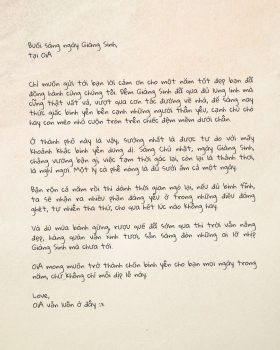 Buổi sáng ngày Giáng Sinh,
tại OIA
Chỉ muốn gửi tới bạn lời cảm ơn cho một năm tốt đẹp bạn đã
đồng hành cùng chúng tôi. Đêm Giáng Sinh đã qua dù lung linh mà
cũng thật vất vả, vượt qua con tắc đường về nhà, để sáng nay
thức giấc bình yên bên cạnh những người thân yêu, cạnh chú cho
hay con mèo nhỏ cuộn tròn trên chiếc đệm mềm dưới chân.
Ở thành phố này là vậy, sướng nhất là được tự do với mấy
khoảnh khắc bình yên dừng đi. Sáng Chủ nhật, ngày Giáng Sinh,
chẳng vướng bận gì, việc tạm thời gác lại, còn lại là thảnh thơi,
là nghỉ ngơi. Một ly cà phê nóng là đủ sưởi ấm cả một ngày.
Bận rộn cả năm rồi thì dành thời gian ngơi lại, nếu đủ bình tĩnh,
ta sẽ nhận ra nhiều phần đáng yêu ở trong những điều đáng
ghét, tự nhiên tha thứ, cho qua hết lúc nào không hay.
Và dù mùa bánh gừng, rượu quế đã sớm qua thì trời vẫn nắng
đẹp, hàng quán vẫn xinh tươi, sẵn sàng đón những ai lỡ nhịp
Giáng Sinh mà chưa tới.
OIA mong muốn trở thành chốn bình yên cho bạn mọi ngày trong
năm, chứ không chỉ mỗi dịp lễ này.
Love,
OIA vẫn luôn ở đây :x